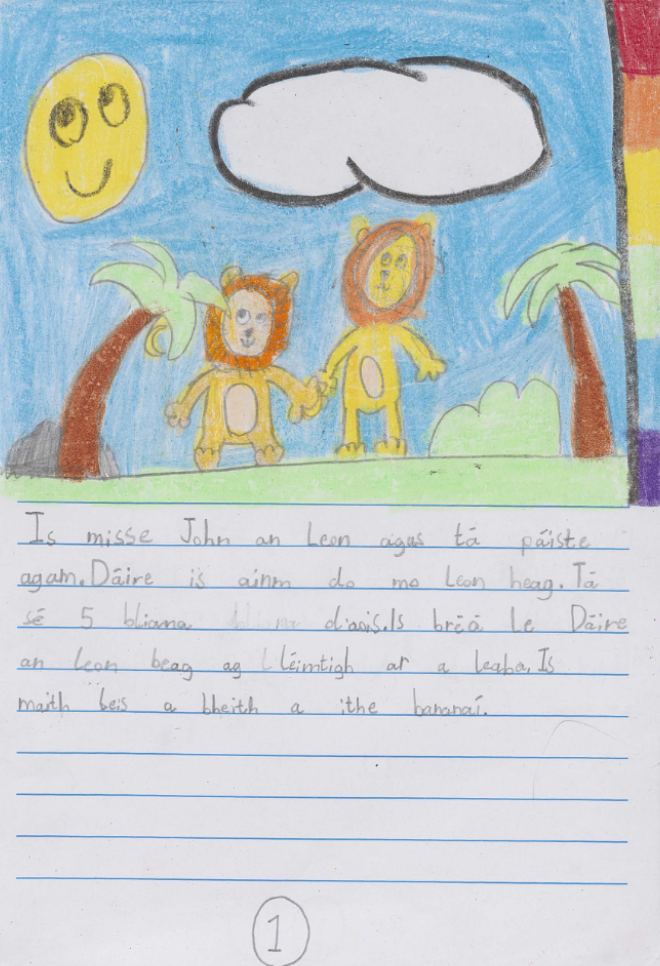 Is misse John an Leon agus tá páiste
agam. Dáire is ainm do mo Leon beag. Tá
sé 5 bliana d'aois. Is bréá le Dáire
an Leon beag ag Léimtigh ar a leaba. Is
maith leis a bheith a ithe bananaí.
1